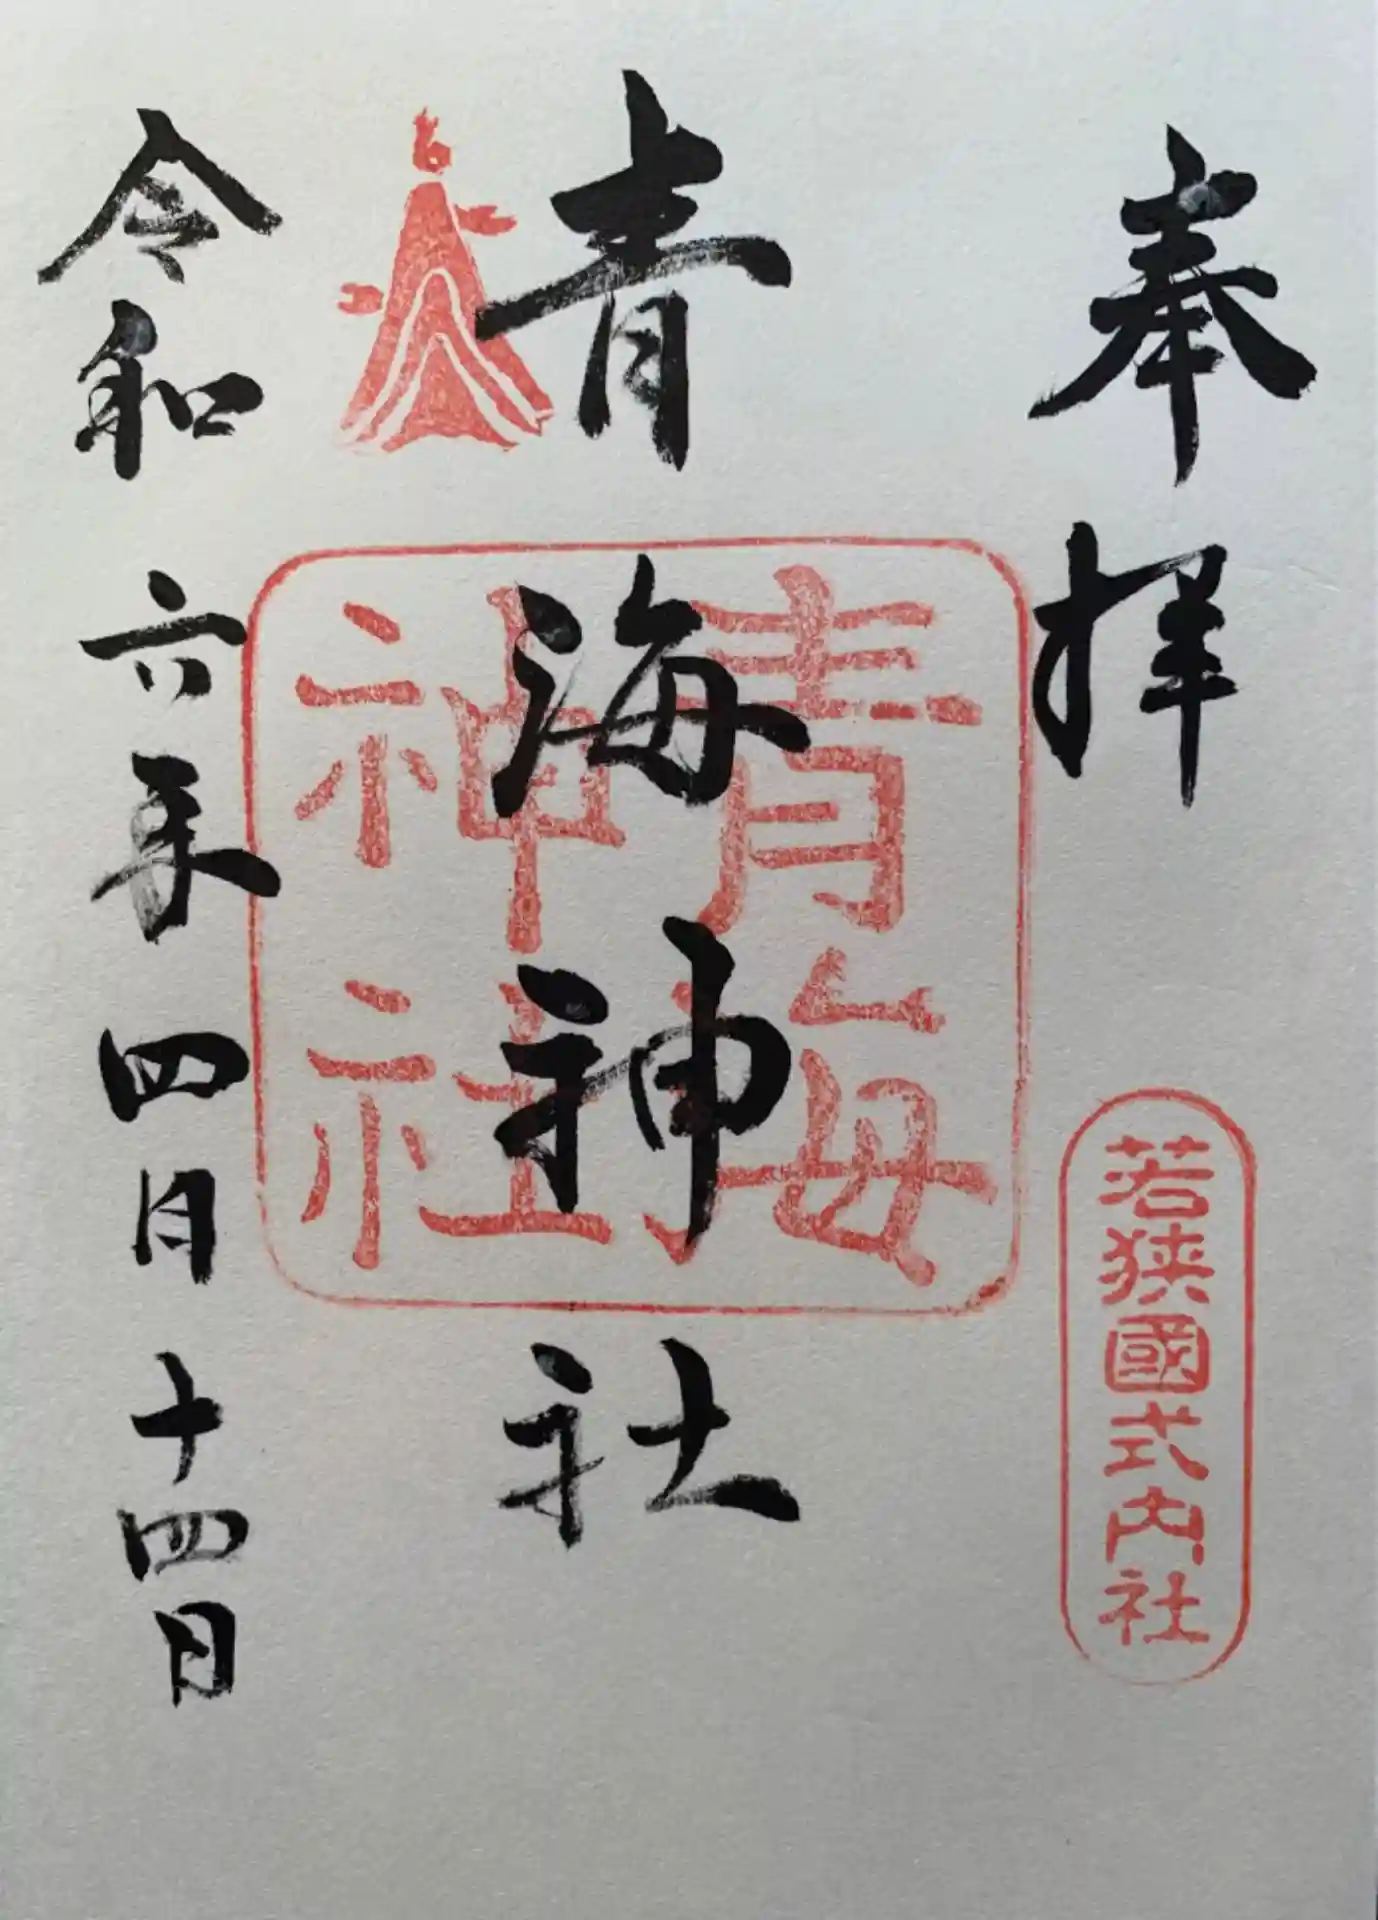 奉拝
若狭國式内社
青海神社
青海神社
令和六年四月十四日